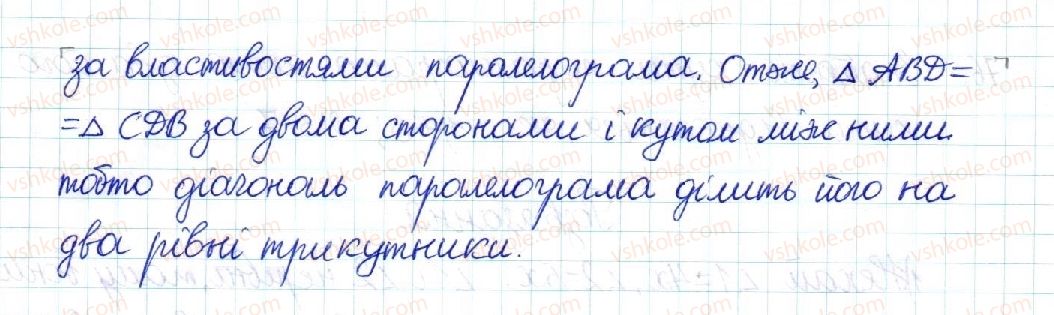 за властивостями паралелограма. Отже, △ ABD =
= △ CDB за двома сторонами і кутом між ними
тобто діагональ паралелограма ділить його на
два рівні трикутники.